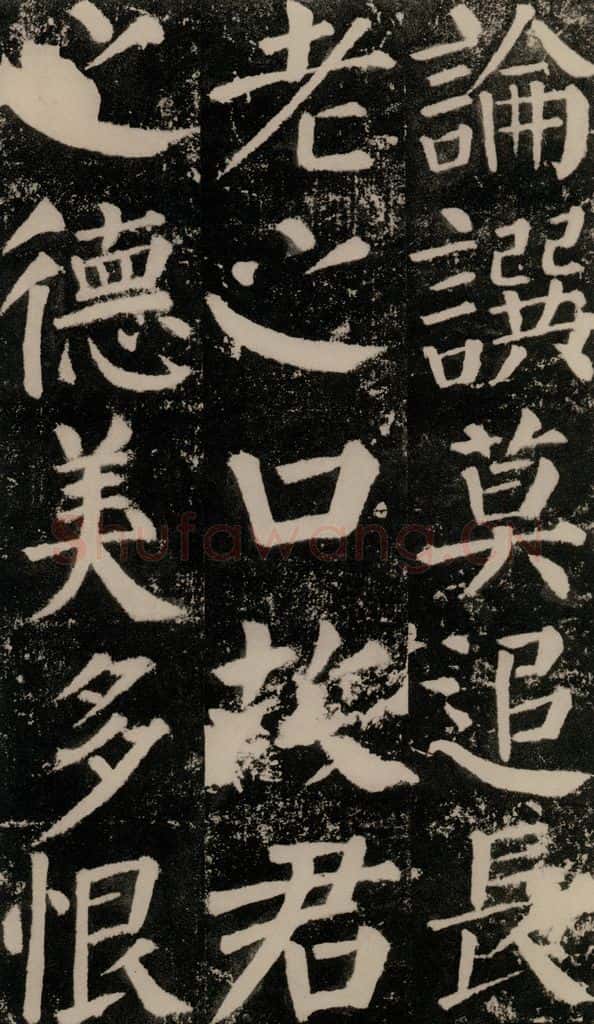 論譔莫追長
老之口故君
之德美多恨
Shufawang.CN